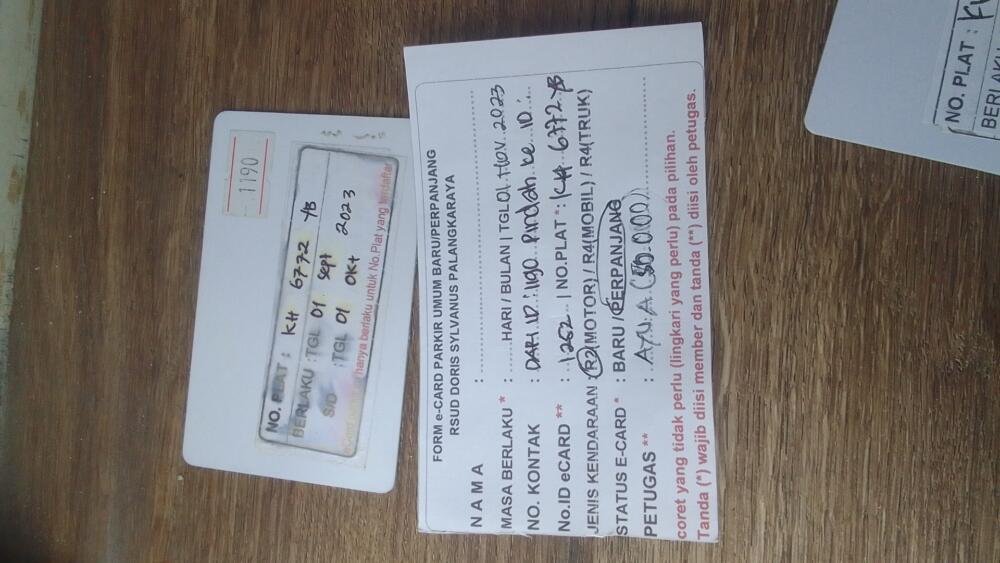 1190
NO. PLAT : KH 6772 YB
BERLAKU : TGL 01 Sept
S/D : TGL 01 Okt 2023
hanya berlaku untuk No.Plat yang terdaftar
FORM e-CARD PARKIR UMUM BARU/PERPANJANG
RSUD DORIS SYLVANUS PALANGKARAYA
N A M A :
MASA BERLAKU * : HARI / BULAN | TGL 01 Nov. 2023
NO. KONTAK : DARI ID : 1190 Pindah ke ID :
No.ID eCARD ** : 1262 | NO.PLAT * : KH 6772 YB
JENIS KENDARAAN : R2(MOTOR) / R4(MOBIL) / R4(TRUK)
STATUS E-CARD * : BARU / PERPANJANG
PETUGAS ** :
coret yang tidak perlu (lingkari yang perlu) pada pilihan.
Tanda (*) wajib diisi member dan tanda (**) diisi oleh petugas.
NO. PLAT :
BERLAKU